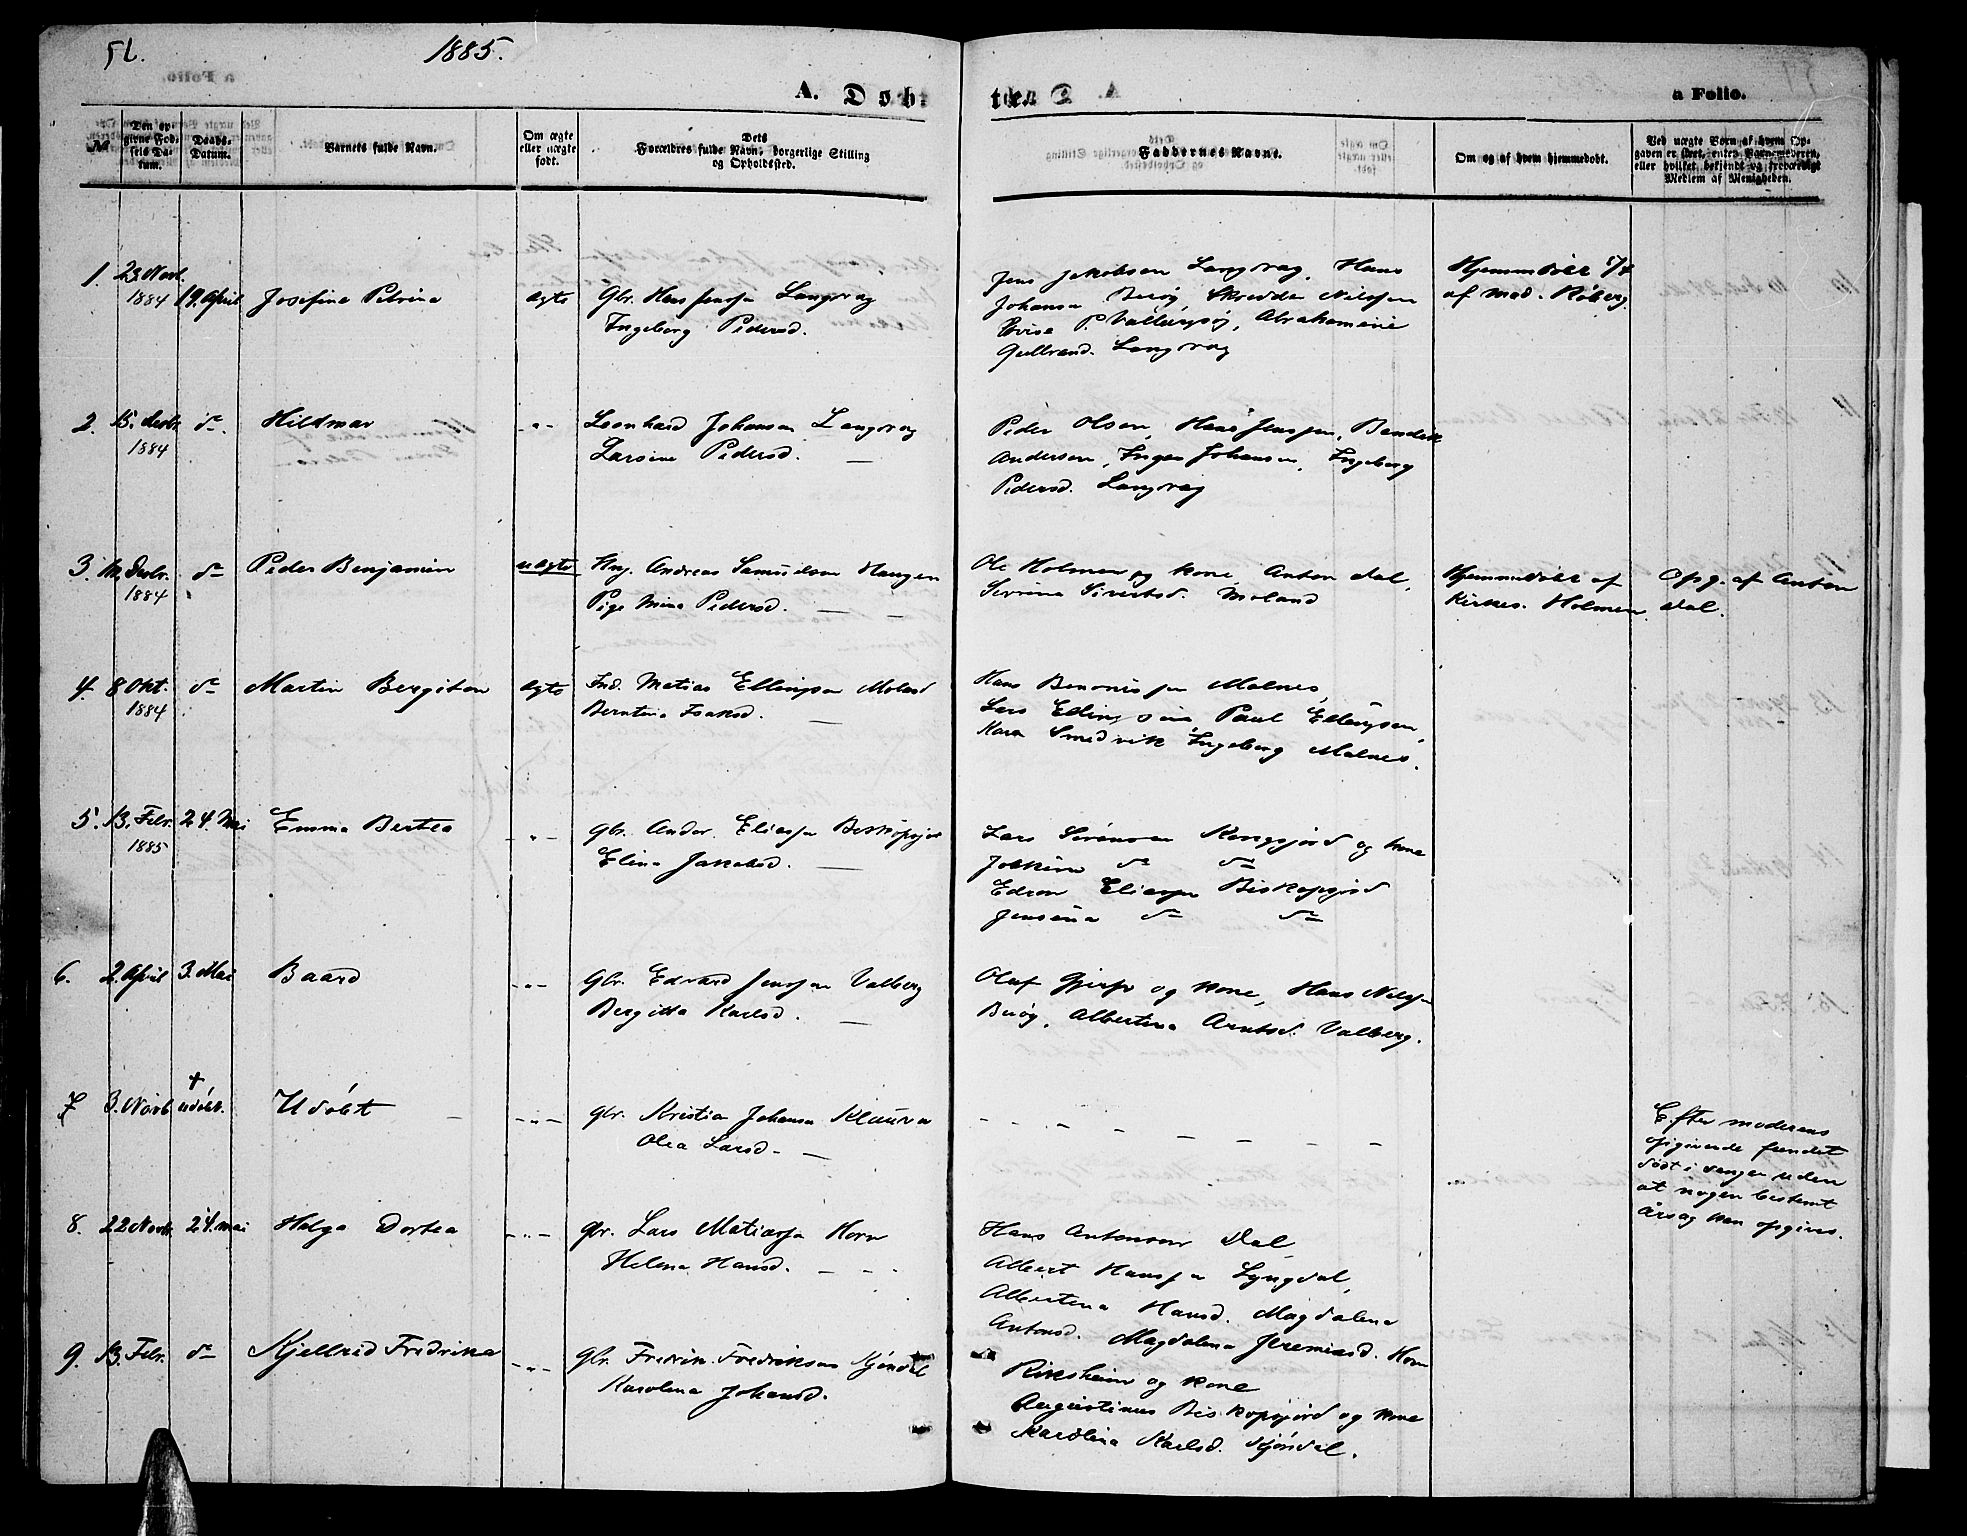 1885.
A. Døb
te.
a Folio.
№
Den opgivne Fødsels Datum.
Daabs-Datum.
Barnets fulde Navn.
Om ægte eller uægte født.
Dets Forældres fulde Navn, borgerlige Stilling og Opholdssted.
Faddernes Navne.
Om og af hvem hjemmedøbt.
Ved uægte Børn af hvem Opgaven er skeet, enten Barnemoderen, eller hvilket bekjendt og troværdigt Medlem af Menigheden.
1. 23 Novb. 1884 19. April Josefine Petrine ægte Gbr. Hans Jenssen Langvag
Ingeborg Pedersd.
Jens Jakobsen Langvag, Hans
Johansen Berög Skredder Nilssen
P. Abrahamine
Gullrand. Langvag
Hjemmedöbt
af mad. Röberg
2. 15. Decbr. 1884 do. Hildmar -"- Leonhard Johansen Langvag
Larsine Pedersd. —
Peder Olsen, Hans Jenssen, Bendik
Andersen, Inger Johansen, Ingeborg
Pedersd. Langvag
3. Decbr. 1884 do Peder Benjamin uægte Ung. Andreas Samuelsen Haugen
Pige Mina Pedersd. — —
Ole Holmen og kone, Anton Dal,
Serina Sivertsd. Moland
Hjemmedöbt af
Kirkes. Holmen
Opg. af Anton
Dal.
4. 8 Okt. 1884 do Martin Bergiton ægte Ind. Matias Ellingsen
Berntina Isaksd. —
Hans Benonissen Malnes,
Lars Ellingsen, Paul Ellingsen,
Karen Smedvik Ingeborg Malnes.
5. 13. Febr. 1885 24. Mai Emma Bertea -"- gbr. Ander. Eliassen
Elina Jakobsd. —
Lars Sörensen Kongsjord og kone
do do
Eliassen Biskopsjord
Jensina do do
6. 2. April 3. Mai Baard -"- gbr. Edvard Jenssen Valberg
Bergitta Karlsd. —
Oluf og kone, Hans
Berög, Albertina Arntsd. Valberg.
7 3. Novb. + udöbt. Udöbt — -"- gbr. Kristia Johansen
Olea Larsd. —
Efter moderens
opgivende fundet
död i sengen uden
at nogen bestemt
årsag kan opgives.
8. 22 Novb. 24. mai Helga Dortea -"- gbr. Lars Matiassen Horn
Helena Hansd. — - -
Hans Antonsen Dal,
Albert Hanssen Lyngdal,
Albertina Hansd. Magdalena
Antonsd. Magdalena Jeremiasd. Horn
9. 13. Febr. do Kjellrid Fredrike -"- gbr. Fredrik Fredriksen
Karolina Johansd.
Riksheim og kone
Augustinus Biskopsjord og kone
Karolina Karlsd.